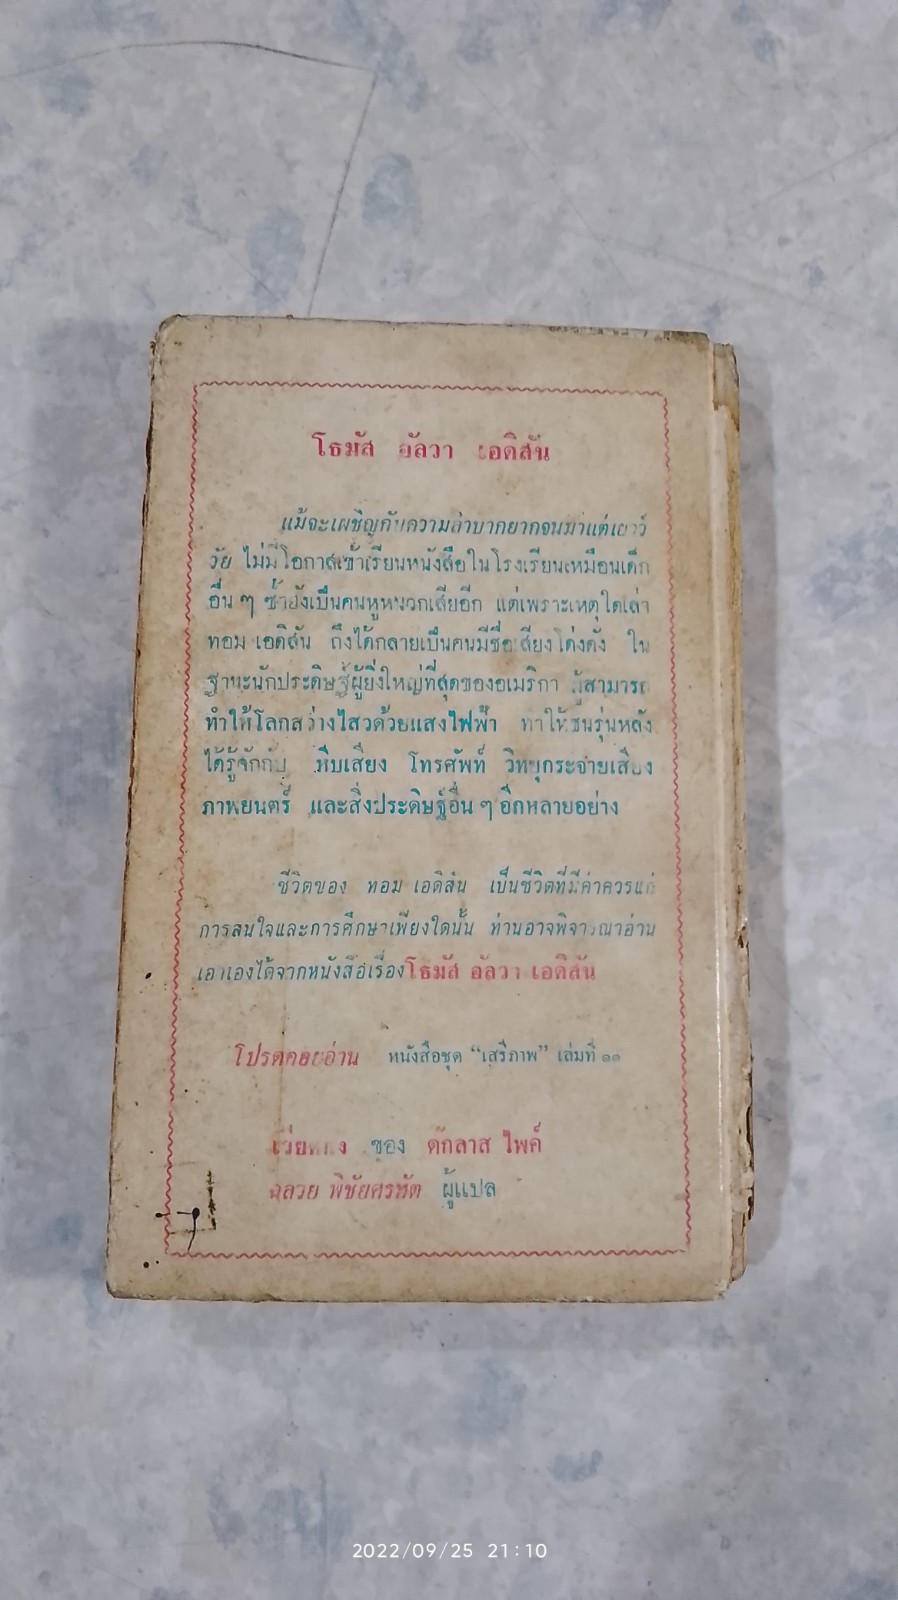 โธมัส อัลวา เอดิสัน
แม้จะเผชิญกับความลำบากยากจนมาแต่เยาว์
วัย ไม่มีโอกาสเข้าเรียนหนังสือในโรงเรียนเหมือนเด็ก
อื่น ๆ ซ้ำยังเป็นคนหูหนวกเสียอีก แต่เพราะเหตุใดเล่า
ทอม เอดิสัน ถึงได้กลายเป็นคนมีชื่อเสียงโด่งดัง ใน
ฐานะนักประดิษฐ์ผู้ยิ่งใหญ่ที่สุดของอเมริกา ผู้สามารถ
ทำให้โลกสว่างไสวด้วยแสงไฟฟ้า ทำให้ชนรุ่นหลัง
ได้รู้จักกับ หีบเสียง โทรศัพท์ วิทยุกระจายเสียง
ภาพยนตร์ และสิ่งประดิษฐ์อื่น ๆ อีกหลายอย่าง
ชีวิตของ ทอม เอดิสัน เป็นชีวิตที่มีค่าควรแก่
การสนใจและการศึกษาเพียงใดนั้น ท่านอาจพิจารณาอ่าน
เอาเองได้จากหนังสือเรื่องโธมัส อัลวา เอดิสัน
โปรดคอยอ่าน หนังสือชุด “เสรีภาพ” เล่มที่ ๑๑
ของ ดักลาส ไพค์
ฉลวย พิชัยศรทัต ผู้แปล
2022/09/25 21:10